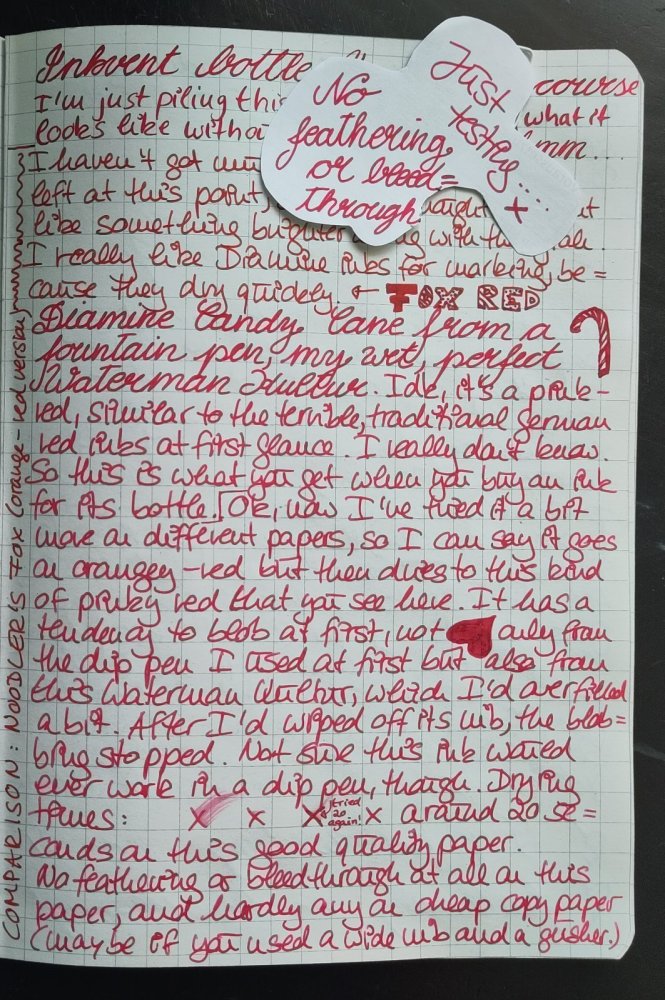 Inkvent bottle course
I'm just piling this what it
looks like withou hmm....
I haven't got mu
left at this point, aught
like something brighter with the
I really like Diamine inks for marking, be=
cause they dry quickly. ← FOX RED
Diamine Candy Cane from a
fountain pen, my wet, perfect
Waterman Kultur. Idk, it's a pink-
red, similar to the terrible, traditional german
red inks at first glance. I really don't know.
So this is what you get when you buy an ink
for its bottle. Ok, now I've tried it a bit
more on different papers, so I can say it goes
on orangey-red but then dries to this kind
of pinky red that you see here. It has a
tendency to blob at first, not only from
the dip pen I used at first but also from
this Waterman Kultur, which I'd overfilled
a bit. After I'd wiped off its nib, the blob=
bing stopped. Not sure this ink would
ever work in a dip pen, though. Drying
times: x x x tried 20 again! x around 20 se=
conds on this good quality paper.
No feathering or bleedthrough at all on this
paper, and hardly any on cheap copy paper
(maybe if you used a wide nib and a gusher.)
No
feathering
or bleed=
through
Just
testing....
+
COMPARISON: NOODLER'S FOX (orange-red version)